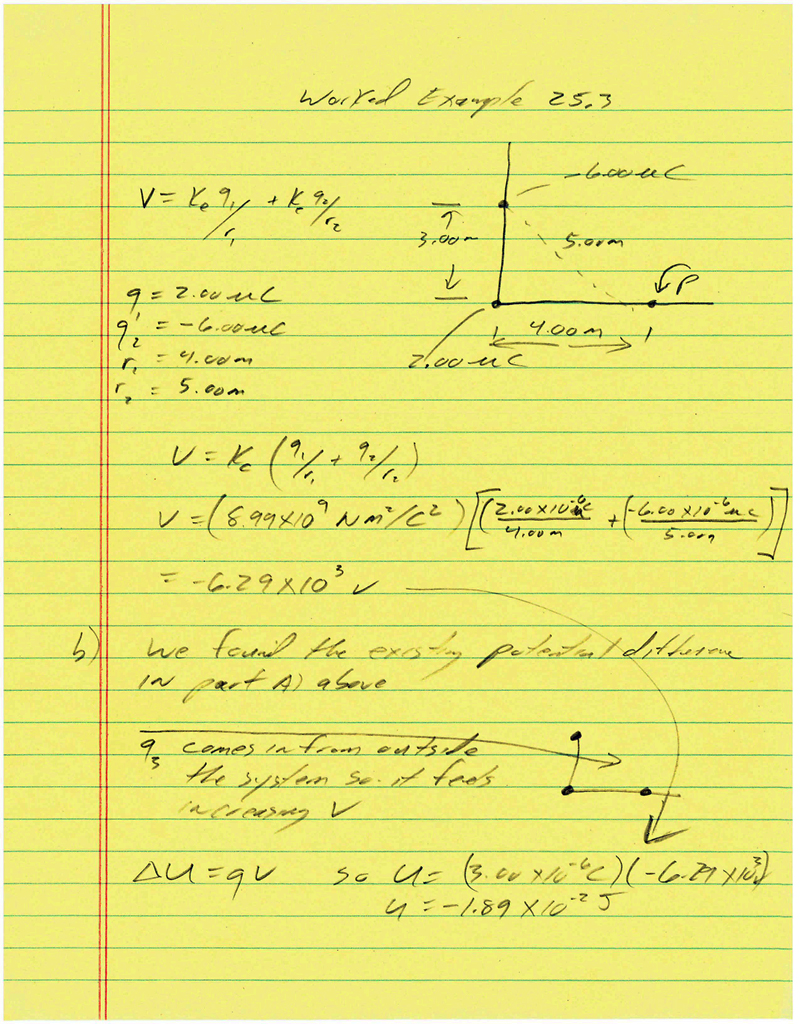 Worked Example 25.3
V = Ke q1/r1 + Ke q2/r2
-6.00 uC
3.00m
5.00m
P
4.00m
2.00 uC
q1 = 2.00 uC
q2 = -6.00 uC
r1 = 4.00m
r2 = 5.00m
V = Ke (q1/r1 + q2/r2)
V = (8.99 X 10^9 Nm^2/C^2) [(2.00 X 10^-6 C / 4.00m) + (-6.00 X 10^-6 uC / 5.00m)]
= -6.29 X 10^3 V
b) We found the existing potential difference
IN part A) above
q3 comes in from outside
the system so it feels
increasing V
ΔU = qV so U = (3.00 X 10^-6 C)(-6.29 X 10^3 V)
U = -1.89 X 10^-2 J